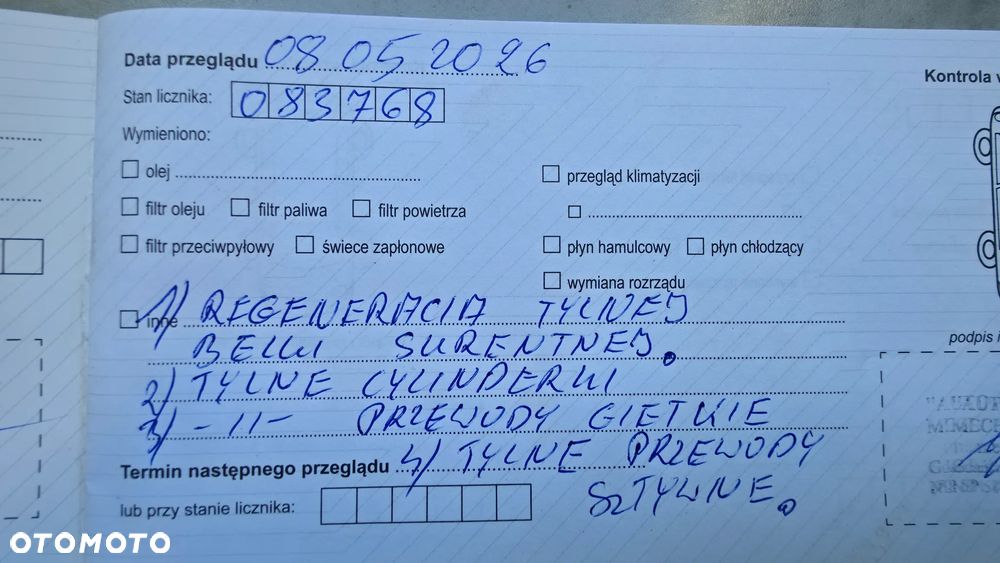 Data przeglądu 08 05 2026
Kontrola
Stan licznika: 083768
Wymieniono:
olej
przegląd klimatyzacji
filtr oleju filtr paliwa filtr powietrza
filtr przeciwpyłowy świece zapłonowe płyn hamulcowy płyn chłodzący
wymiana rozrządu
inne 1) REGENERACIA TYLNEJ
BELKI SKRENTNEJ.
podpis i
2) TYLNE CYLINDERKI
3) -II- PRZEWODY GIETKIE
Termin następnego przeglądu 4) TYLNE PRZEWODY
SZTYWNE.
lub przy stanie licznika:
OTOMOTO